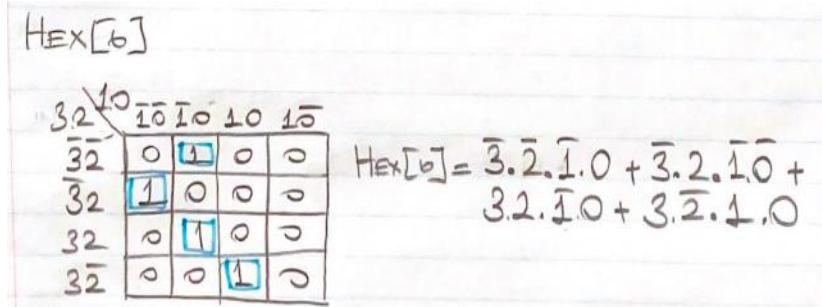 HEX[6]
3.2 10 1̅0̅ 1̅0 10 10̅
3̅2̅ 0 1 0 0
3̅2 1 0 0 0
32 0 1 0 0
32̅ 0 0 1 0
HEX[6] = 3̅.2̅.1̅.0 + 3̅.2.1̅.0̅ +
3.2.1̅.0 + 3.2̅.1.0